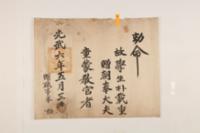 勅命
故學生朴載重
贈朝奉大夫
童蒙教官者
光武六年五月三日